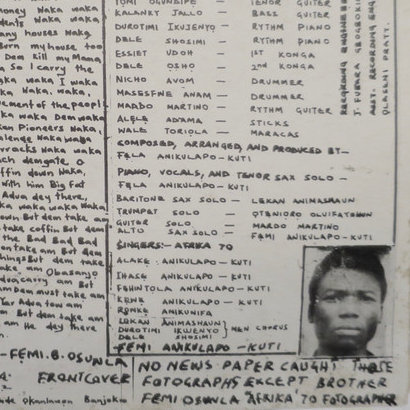 oney Waka waka
dents Waka,
any houses Waka
Burn my house too
Dem kill my Mama
So I carry the
waka, waka I waka
Waka, waka,
vement of the people
ka waka Dem waka
an Pioneers Waka,
Waka waka
vracks Waka waka
ch demgate o
ffin down Waka,
With him Big Fat
Adva dey there,
waka waka Waka
own. But dem take am
take coffin But dem
the Bad Bad Bad
on take am But dem
things But dem take
take. am Obasanjo
dva,carry am But
am Dem must take am
Yar Adva tow am
But dem take am
am He dey there
TENOR GUITER
KALANKY JALLO — BASS GUITER
DUROTIMI IKUJENYO — RYTHM PIANO
DELE SHOSIMI — RYTHM PIANO
ESSIET UDOH — 1ST KONGA
DELE OSHO — 2ND KONGA
NICHO AVOM — DRUMMER
MASESFNE ANAM — DRUMMER
MARDO MARTINO — RYTHM GUITER
ALELE ADAMA — STICKS
WALE TORIOLA — MARACAS
COMPOSED, ARRANGED, AND PRODUCED BY—
FELA ANIKULAPO-KUTI
PIANO, VOCALS, AND TENOR SAX SOLO —
FELA ANIKULAPO-KUTI
BARITONE SAX SOLO — LEKAN ANIMASHAUN
TRUMPET SOLO —
GUITER SOLO — MARDO MARTINO
ALTO SAX SOLO — FEMI ANIKULAPO-KUTI
SINGERS:- AFRIKA 70
ALAKE ANIKULAPO-KUTI
IHASE ANIKULAPO-KUTI
FEHINTOLA ANIKULAPO-KUTI
ANIKULAPO-KUTI
RONKE
LEKAN ANIMASHAUN
DUROTIMI IKUJENYO MEN CHORUS
DELE SHOSIMI
FEMI ANIKULAPO-KUTI
RECORDING ENGINEERS
AUST. RECORDING ENG.
-FEMI.B.OSUNLA
FRONTCOVER
NO NEWS PAPER CAUGHT THESE
FOTOGRAPHS EXCEPT BROTHER
FEMI OSUNLA "AFRIKA" 70 FOTOGRAPHER